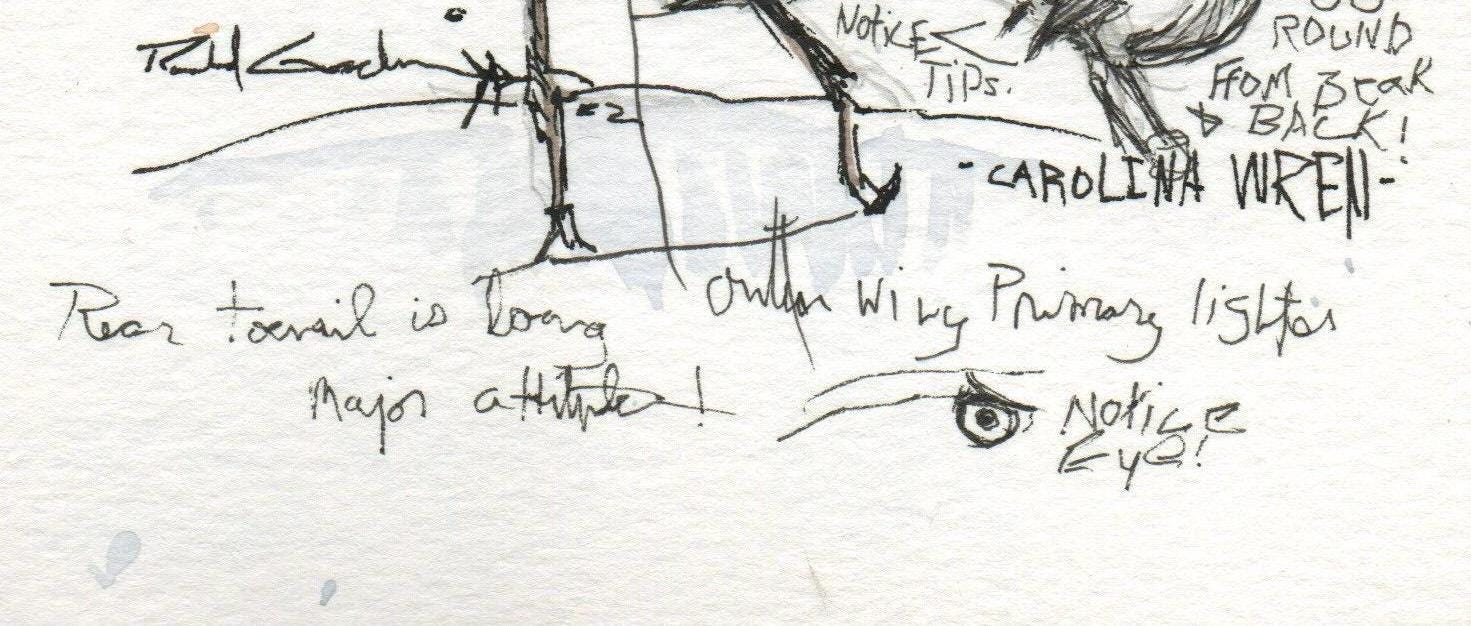 NOTICE
TIPS.
ROUND
FROM BEAK
BACK!
-CAROLINA WREN-
=2
Rear toenail is long
Major attitude!
Outer Wing Primary lighter
Notice
Eye!